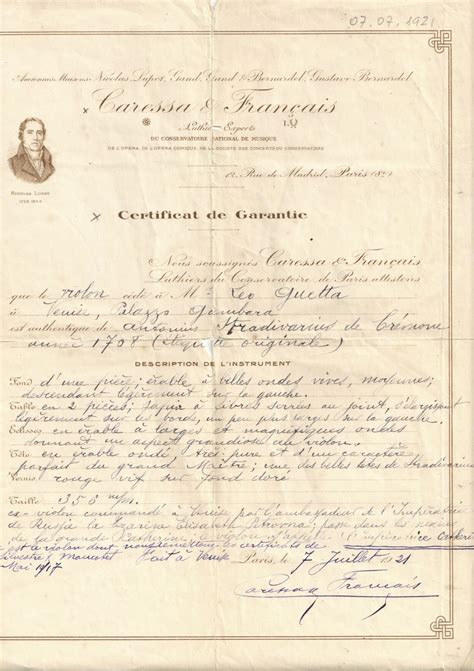 07.07.1921
Anciennes Maisons: Nicolas Lupot, Gand, Gand & Bernardel, Gustave Bernardel
Caressa & Français
Luthiers Experts
DU CONSERVATOIRE NATIONAL DE MUSIQUE
DE L'OPÉRA, DE L'OPÉRA COMIQUE, DE LA SOCIÉTÉ DES CONCERTS DU CONSERVATOIRE
NICOLAS LUPOT
12, Rue de Madrid, Paris
Certificat de Garantie
Nous soussignés Caressa & Français
Luthiers du Conservatoire de Paris attestons
que le violon cédé à Mr Leo Guetta
à Venise, Palazzo
est authentique de Antonius Stradivarius de Crémone
année 1708 (étiquette originale)
DESCRIPTION DE L'INSTRUMENT
Fond d'une pièce, érable à ondes vives, moyennes;
descendant légèrement sur la gauche.
Table en 2 pièces, sapin à serrées au joint, s'élargissant
légèrement les bords, un peu plus larges sur la gauche.
Eclisses en érable à larges et magnifiques ondes
donnant un aspect grandiose au violon.
Tête en érable ondé, très pure et d'un caractère
parfait du grand Maître; une des belles têtes de Stradivarius
Vernis rouge vif sur fond doré
Taille 353 m/m.
ce violon commandé à Venise par l'ambassadeur de l'Impératrice
de Russie la Tzarine Elisabeth Petrovna; passa dans les
de la grande Catherine; ce violon l'Impératrice Catherine
certificats de
Silvestre & Maucotel Fait à Venise Paris, le 7 Juillet 1921
Mai 1917
Caressa Français